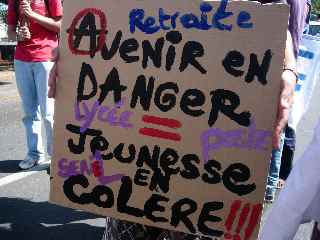 Retraite
Avenir en
DANGER
lycée = poste
Jeunesse
EN
COLERE!!!